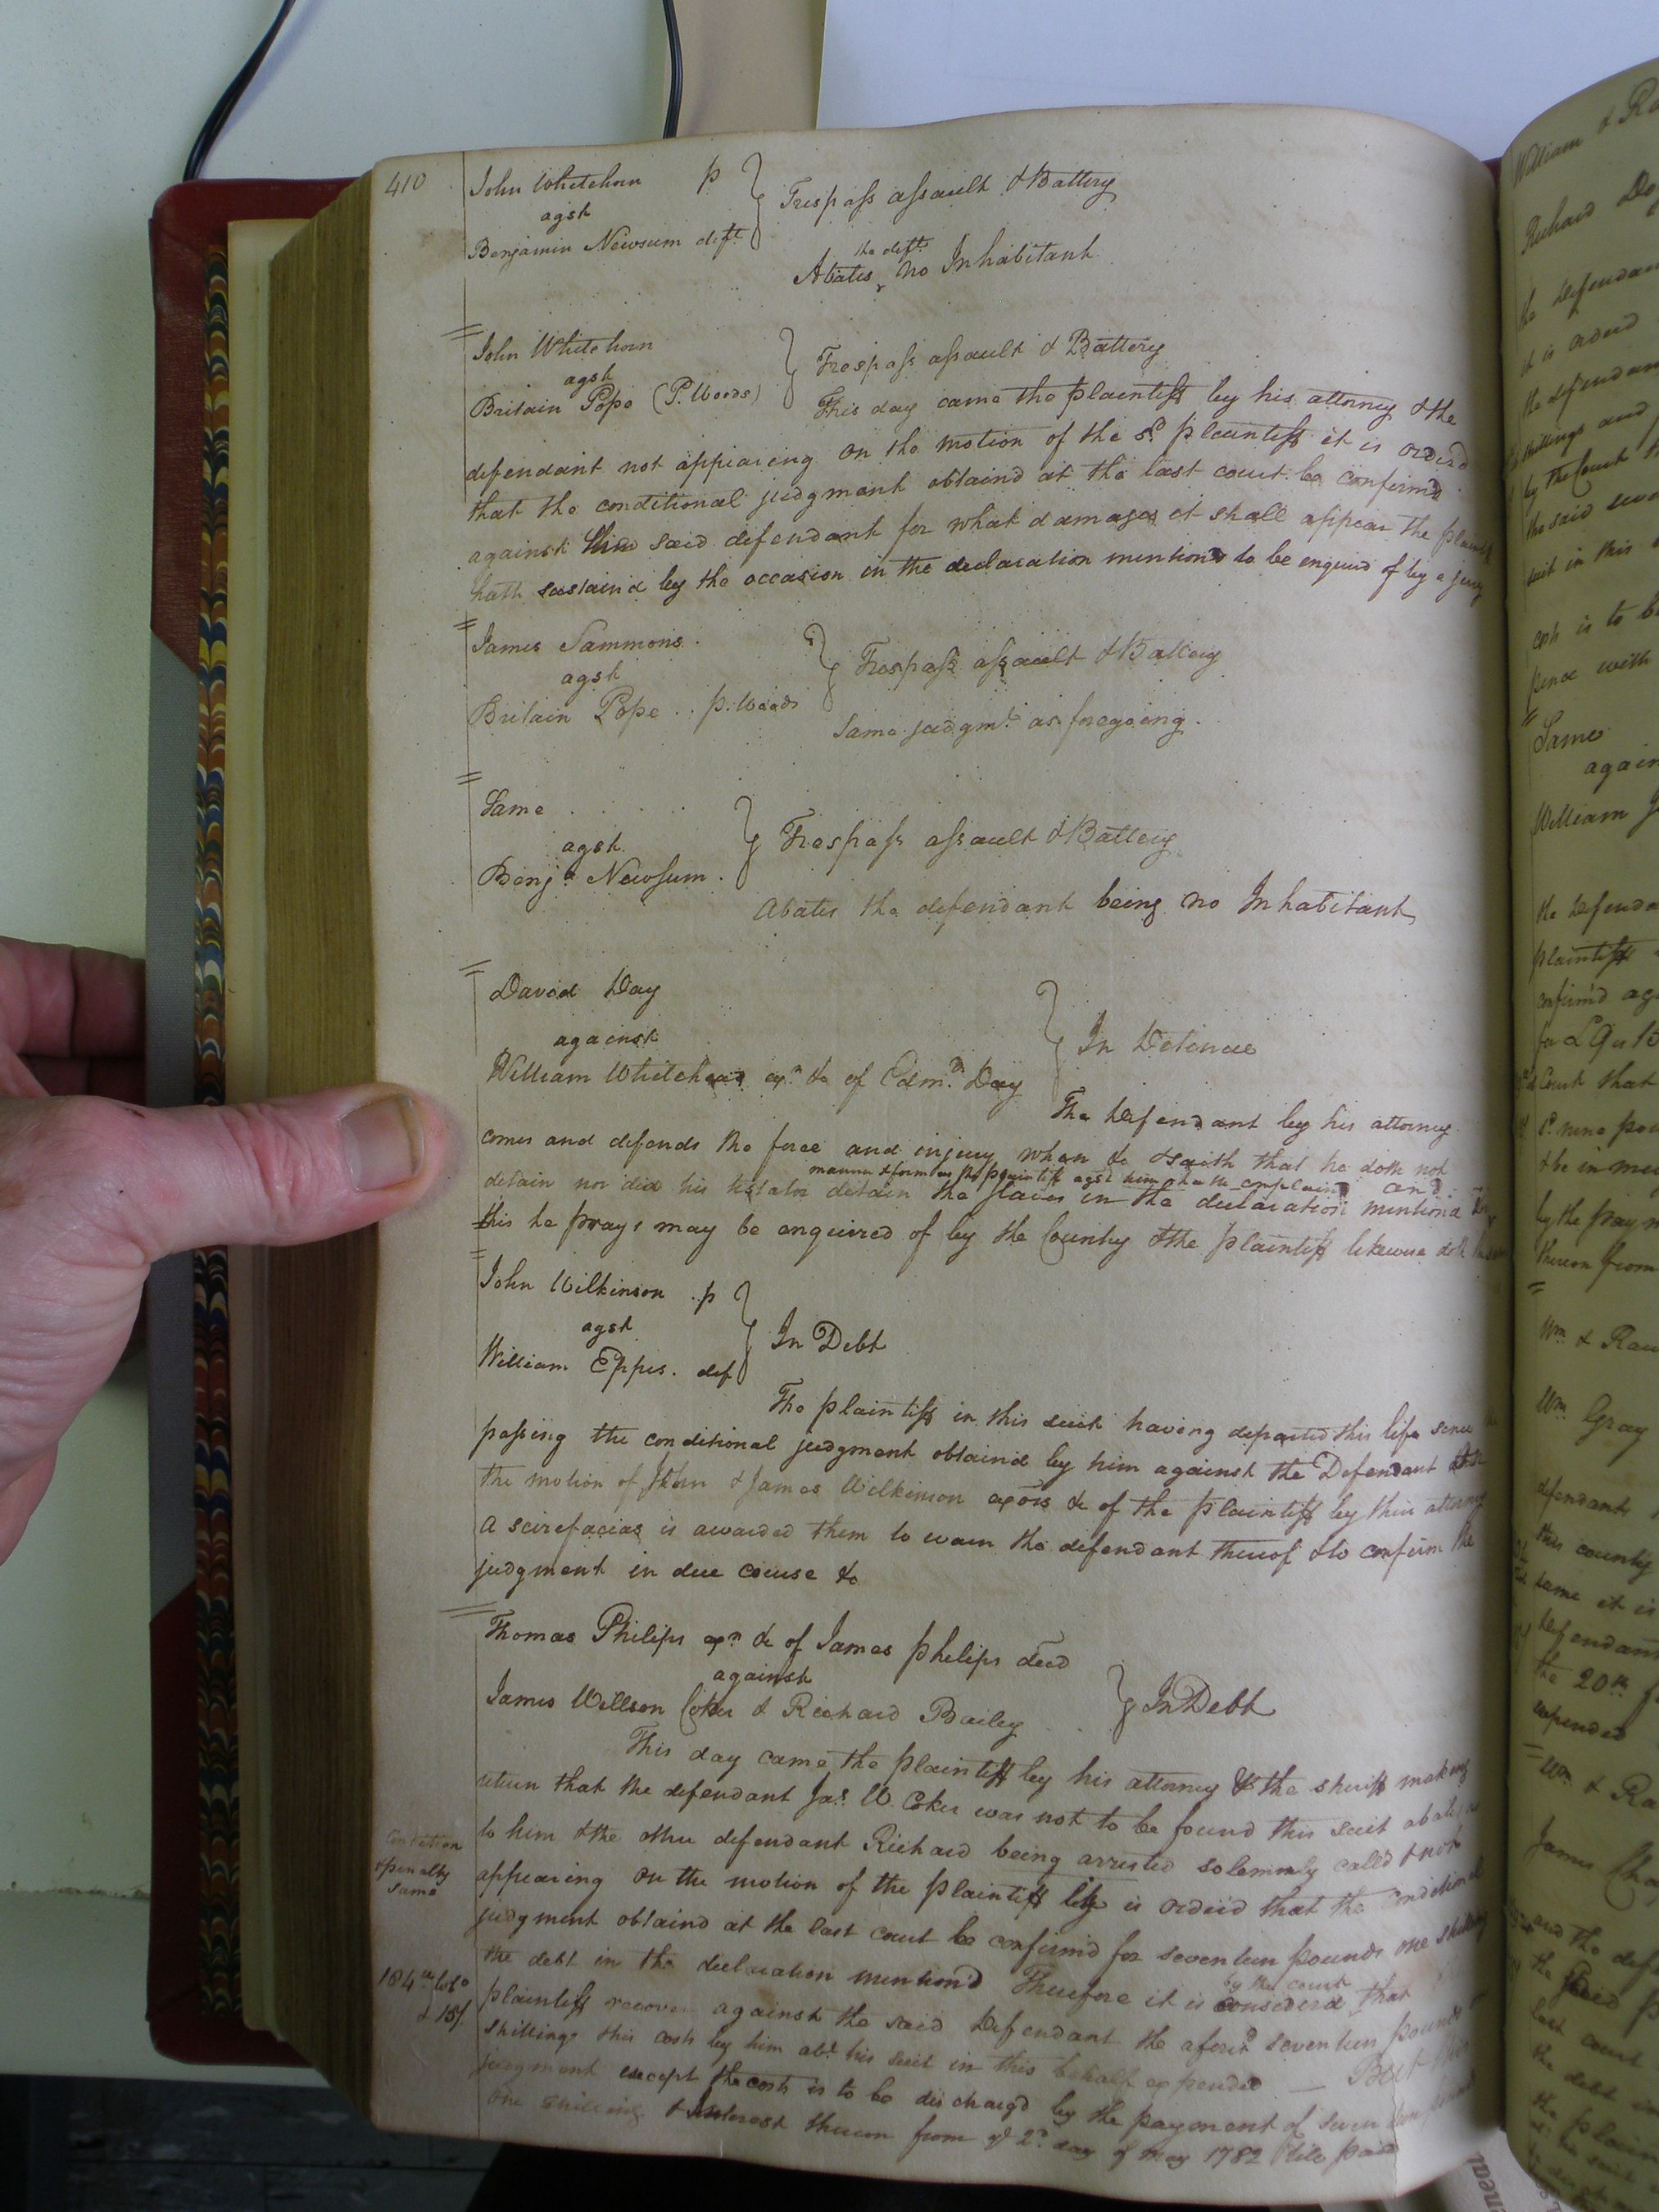 410
John Whitehorn p
agst
Benjamin Newsum deft.
Trespass assault & Battery
the deft.
Abates no Inhabitant
John Whitehorn
agst
Britain Pope (P. Woods)
Trespass assault & Battery
This day came the plaintiff by his attorney & the
defendant not appearing on the motion of the sd. plaintiff it is orderd
that the conditional judgment obtaind at the last court be confirmd
against said defendant for what damages it shall appear the
hath sustaind by the occasion in the declaration mentiond to be enquired of by a jury
James Sammons
agst
Britain Pope . . p. Woods
Trespass assault & Battery
Same judgmt. as foregoing.
Same
agst.
Benja. Newsum.
Trespass assault & Battery
Abates the defendant being no Inhabitant
David Day
against
William Whitehead exr. &c of Edmd. Day
In Detinue
The defendant by his attorney
comes and defends the force and injury when &c & saith that he doth not
manner & form as the plaintiff agst him hath complaind and
detain nor did his testator detain the slaves in the declaration mentiond
this he prays may be enquired of by the Country & the plaintiff likewise doth
John Wilkinson . p
agst
William Eppes. def
In Debt
The plaintiff in this suit having departed this life since
passing the conditional judgment obtaind by him against the Defendant
the motion of John & James Wilkinson exors &c of the plaintiff by their attorney
A scirefacias is awarded them to warn the defendant thereof & to confirm the
judgment in due course &c
Thomas Philips exr. &c of James philips decd
against
James Willson Coker & Richard Bailey
In Debt
This day came the plaintiff by his attorney & the sheriff making
return that the defendant Jas. W. Coker was not to be found this suit abates
to him & the other defendant Richard being arrested solemnly calld & not
Condition
& penalty
same
appearing on the motion of the plaintiff is orderd that the conditional
judgment obtaind at the last court be confirmd for seventeen pounds one shilling
the debt in the declaration mention'd Therefore it is considerd that
by the court
184 lb to
& 15/.
plaintiff recover against the said defendant the aforesd. seventeen pounds
shillings & his costs by him abt. his suit in this behalf expended — But this
judgment except the costs is to be dischargd by the payment of seventeen pounds
one shilling & interest thereon from ye 2d. day of May 1782 till paid
William & Ra
Richard
the defendan
it is orderd
the defendan
shillings and
by the Court
the said
suit in this
costs is to be
pence with
Same
again
William
the defenda
plaintiff
confirm'd ag
for £9 " 15
Court that
& be in mer
by the paym
thereon from
Wm. & Raw
Wm Gray
defendants
this county
same it is
defendant
the 20th
expended
Wm. & Ra
James Cha
and the defe
the said p
last court
the debt in
the plain